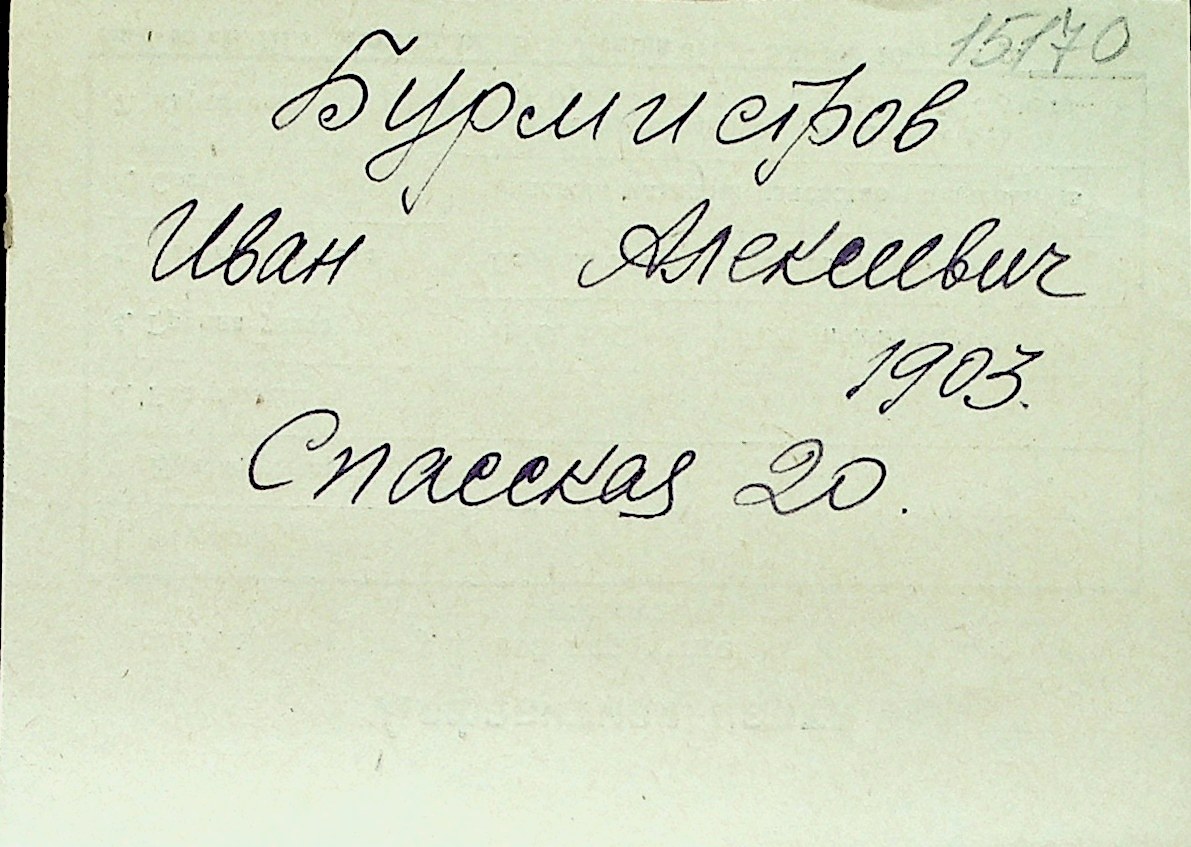 15170
Бурмистров
Иван Алексеевич
1903.
Спасская 20.